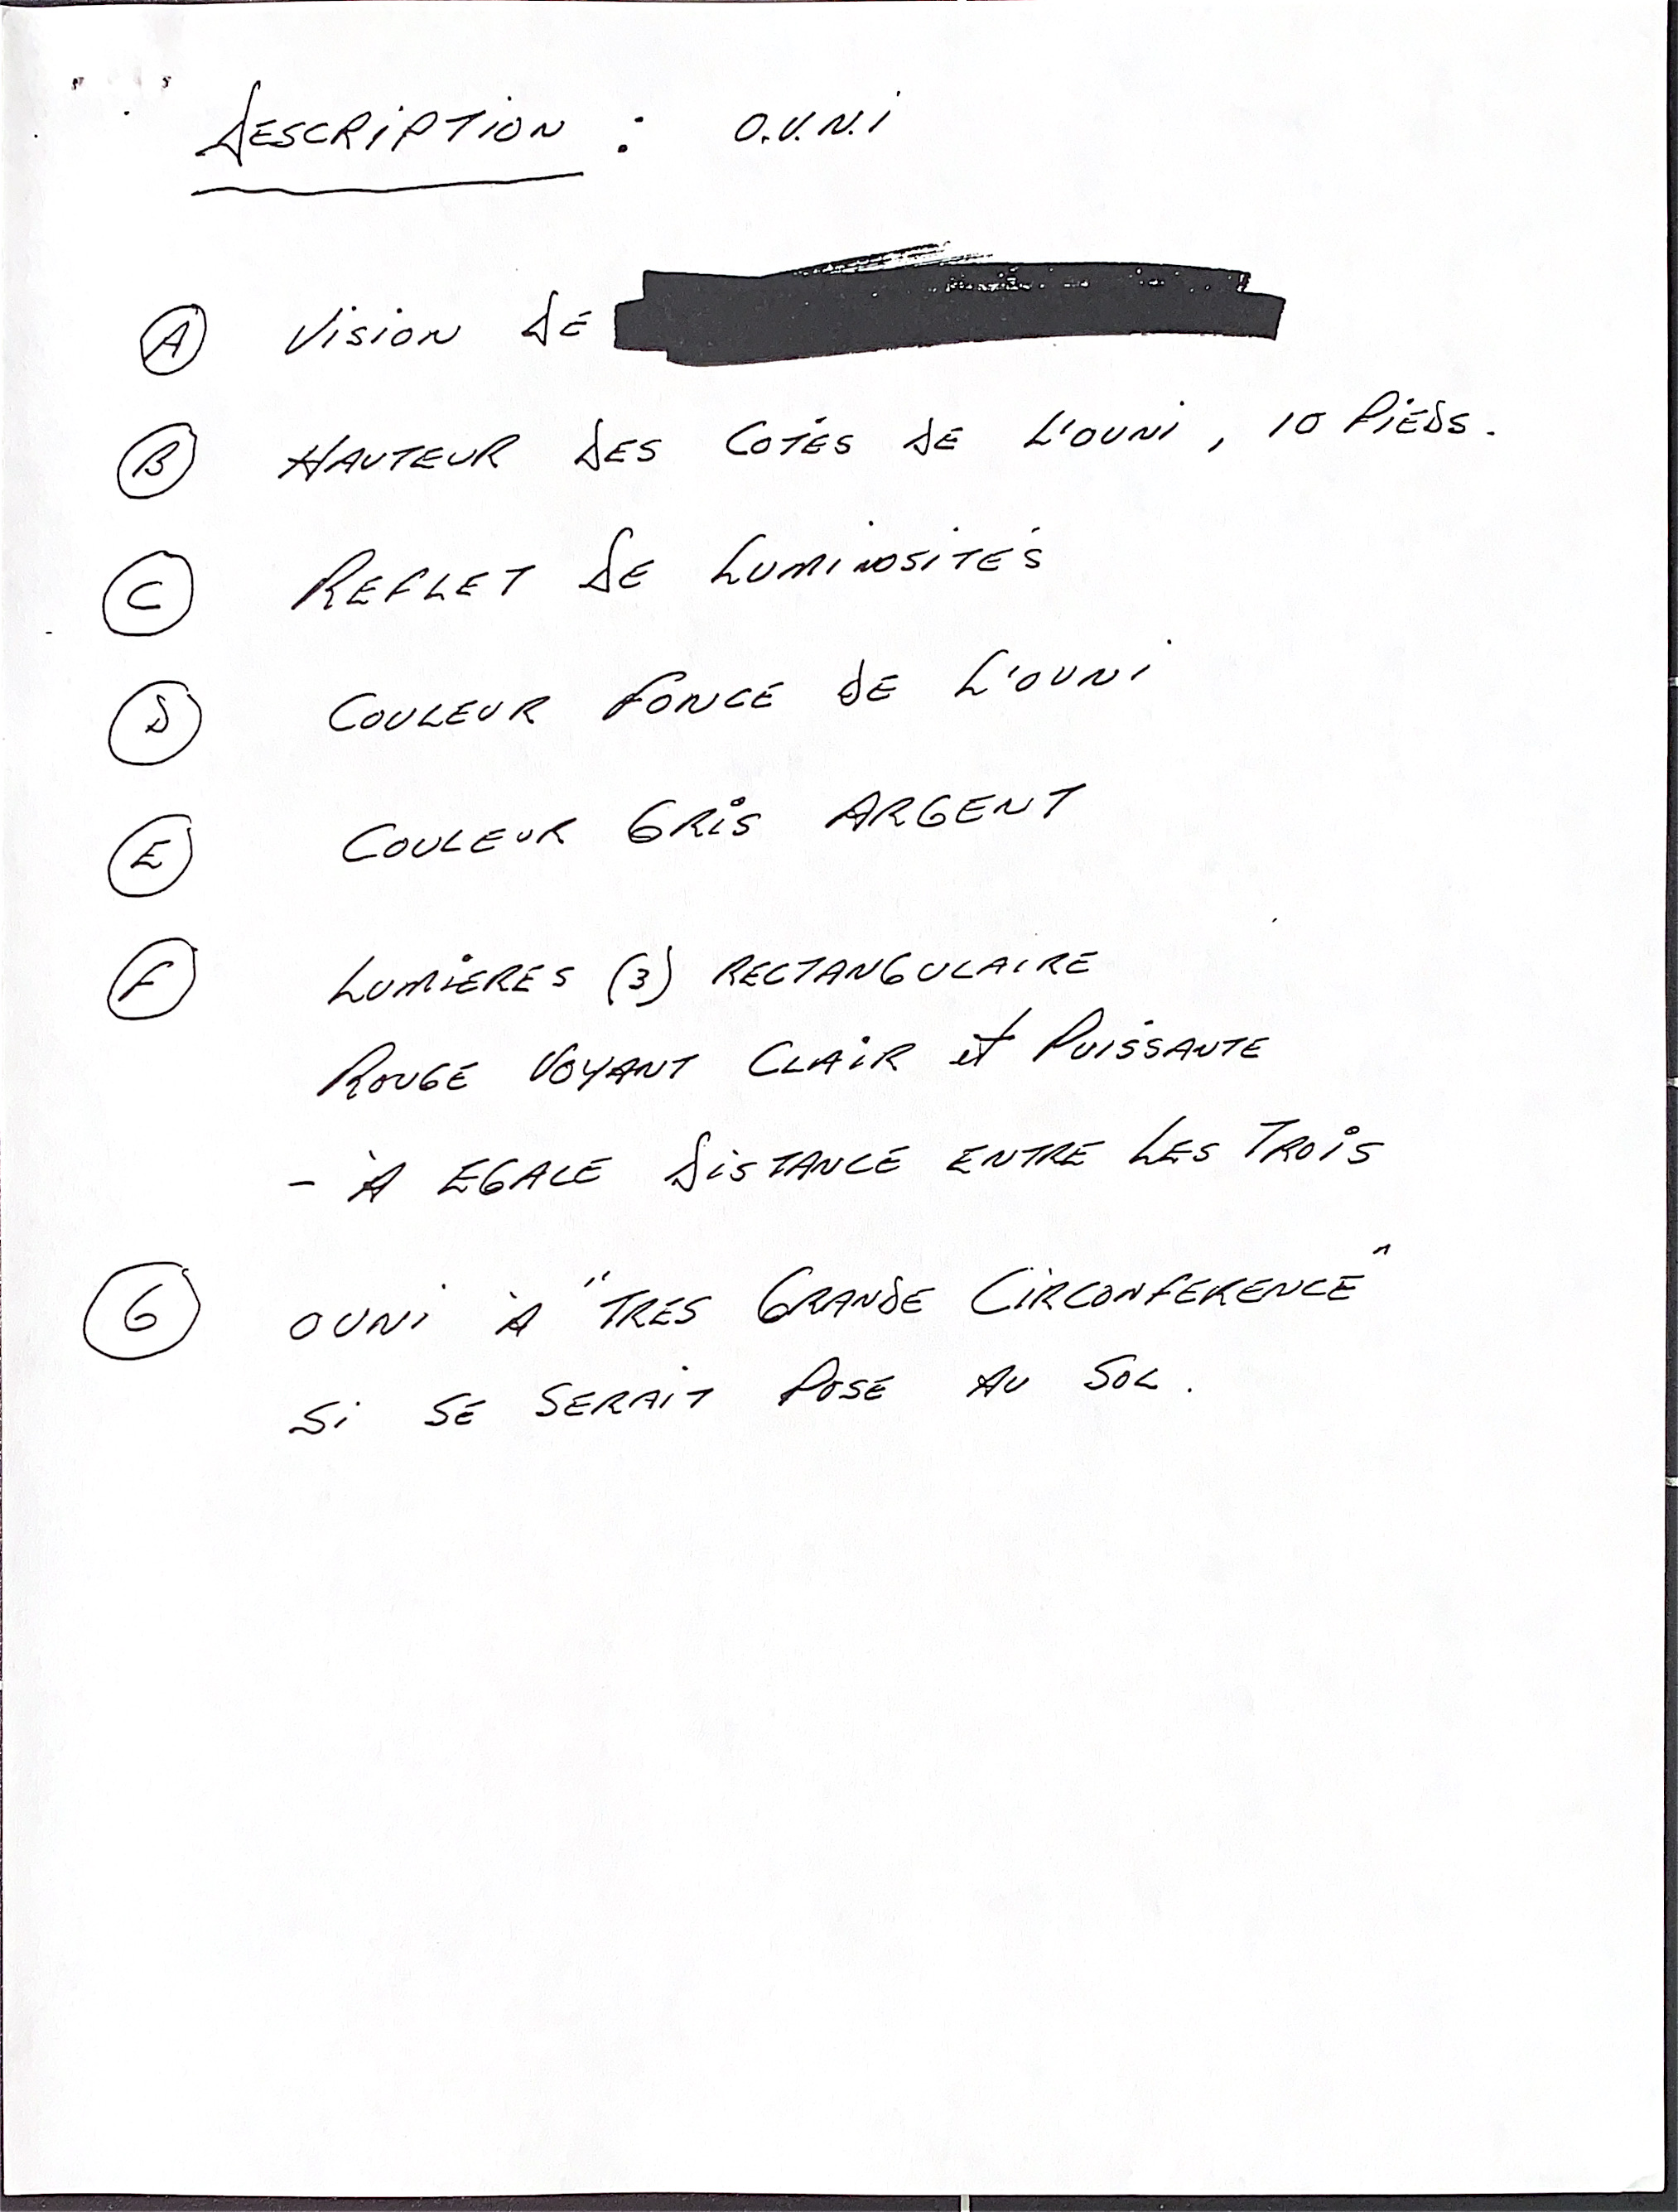 DESCRIPTION : O.U.N.I
A VISION DE
B HAUTEUR DES COTÉS DE L'OUNI, 10 PIEDS.
C REFLET DE LUMINOSITÉS
D COULEUR FONCÉ DE L'OUNI
E COULEUR GRIS ARGENT
F LUMIÈRES (3) RECTANGULAIRE
ROUGE VOYANT CLAIR et PUISSANTE
- À EGALE DISTANCE ENTRE LES TROIS
G OUNI À "TRES GRANDE CIRCONFERENCE"
SI SE SERAIT POSÉ AU SOL.